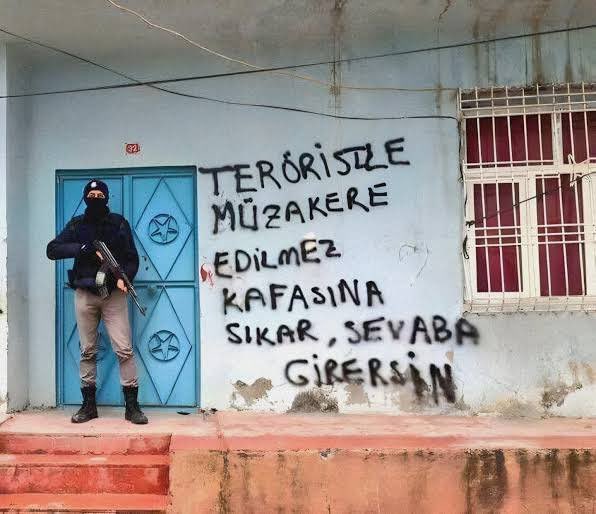 32
TERÖRİSTLE
MÜZAKERE
EDİLMEZ
KAFASINA
SIKAR, SEVABA
GİRERSİN